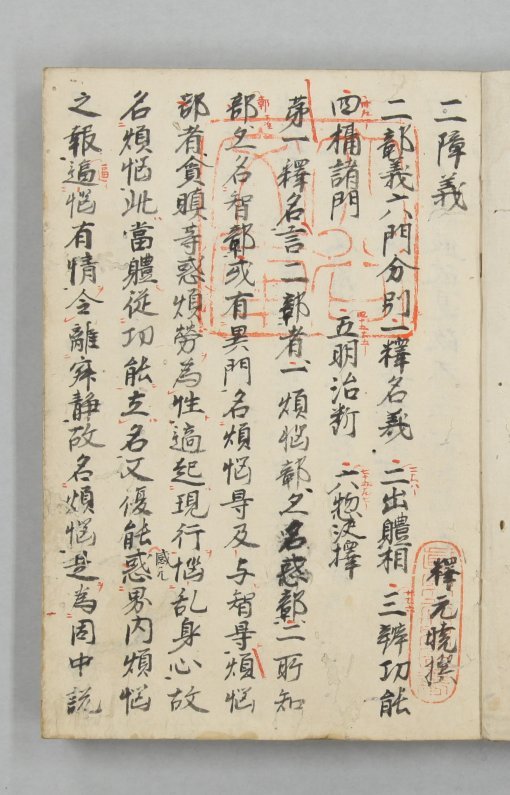 二障義
釋元曉撰
二鄣義六門分別一釋名義 二出體相 三辨功能
四攝諸門 五明治斷 六惣決擇
第一釋名言二鄣者一煩惱鄣亦名惑鄣二所知
鄣亦名智鄣或有異門名煩惱㝵及与智㝵煩惱
鄣者貪瞋等惑煩勞為性適起現行惱乱身心故
名煩惱此當體從功能立名又復能惑界内煩惱
之報逼惱有情令離寂静故名煩惱是為因中說